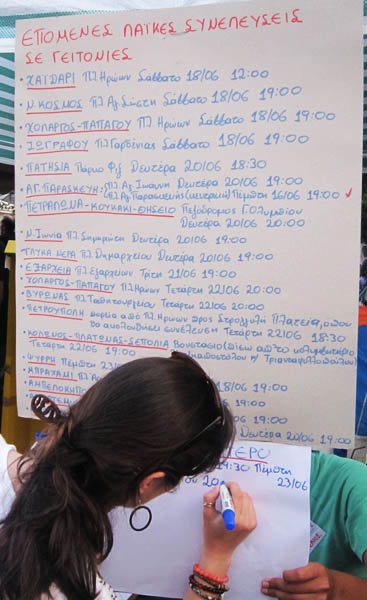 ΕΠΟΜΕΝΕΣ ΛΑΪΚΕΣ ΣΥΝΕΛΕΥΣΕΙΣ
ΣΕ ΓΕΙΤΟΝΙΕΣ
• ΧΑΪΔΑΡΙ Πλ. Ηρώων Σάββατο 18/06 12:00
• Ν. ΚΟΣΜΟΣ Πλ. Αγ. Σώστη Σάββατο 18/06 19:00
• ΧΟΛΑΡΓΟΣ-ΠΑΠΑΓΟΥ Πλ. Ηρώων Σάββατο 18/06 19:00
• ΖΩΓΡΑΦΟΥ Πλ. Γαρδένιας Σάββατο 18/06 19:00
• ΠΑΤΗΣΙΑ Πάρκο Φιξ Δευτέρα 20/06 18:30
• ΑΓ. ΠΑΡΑΣΚΕΥΗ: Πλ. Αγ. Ιωάννη Δευτέρα 20/06 19:00
Πλ. Αγ. Παρασκευής (κεντρική) Πέμπτη 16/06 19:00 ✓
• ΠΕΤΡΑΛΩΝΑ-ΚΟΥΚΑΚΙ-ΘΗΣΕΙΟ Πεζόδρομος
Δευτέρα 20/06 20:00
• Ν. Ιωνία Πλ. Σημηριώτη Δευτέρα 20/06 19:00
ΓΛΥΚΑ ΝΕΡΑ Πλ. Δημαρχείου Δευτέρα 20/06 19:00
• ΕΞΑΡΧΕΙΑ Πλ. Εξαρχείων Τρίτη 21/06 19:00
• ΧΟΛΑΡΓΟΣ-ΠΑΠΑΓΟΥ Πλ. Ηρώων Τετάρτη 22/06 20:00
• ΒΥΡΩΝΑΣ Πλ. Ταπητουργείου Τετάρτη 22/06 20:00
• ΠΕΤΡΟΥΠΟΛΗ πορεία από Πλ. Ηρώων προς Στρογγυλή Πλατεία, όπου
θα ακολουθήσει συνέλευση Τετάρτη 22/06 18:30
• ΚΟΛΩΝΟΣ-ΠΛΑΤΩΝΑΣ-ΣΕΠΟΛΙΑ Βουστάσιο (πίσω απ'το κολυμβητήριο
Τετάρτη 22/06 19:00 Τριανταφυλλοπούλου)
• ΨΥΡΡΗ Πέμπτη 23/06
• ΚΠΡΑΧΑΜΙ Πλ. 18/06 19:00
• ΑΜΠΕΛΟΚΗΠ /06 19:00
06 19:00
Δευτέρα 20/06 19:00
ΤΕΡΟ
19:30 Πέμπτη
23/06